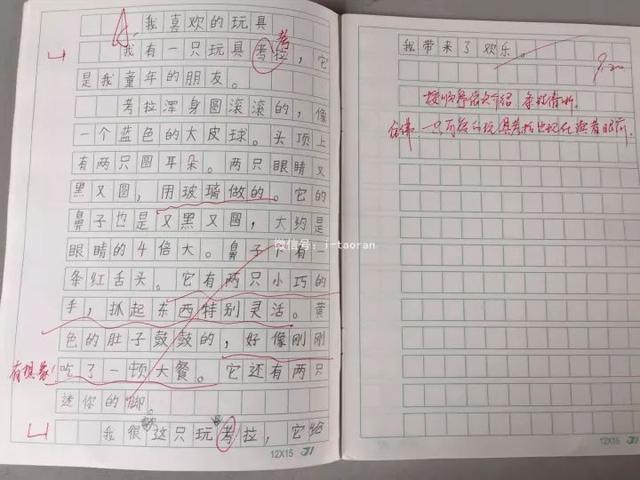 我喜欢的玩具
我有一只玩具考拉，它
是我童年的朋友。
考拉浑身圆滚滚的，像
一个蓝色的大皮球。头顶上
有两只圆耳朵。两只眼睛又
黑又圆，用玻璃做的。它的
鼻子也是又黑又圆，大约是
眼睛的4倍大。鼻子下有一
条红舌头。它有两只小巧的
手，抓起东西特别灵活。黄
色的肚子鼓鼓的，好像刚刚
吃了一顿大餐。它还有两只
迷你的脚。
我很这只玩考拉，它给
考
有想象！
12X15
微信号：i-taoran
我带来了欢乐。
9.20
按顺序依次介绍，条理清晰，
仿佛一只可爱的玩具考拉出现在读者眼前。
12X15